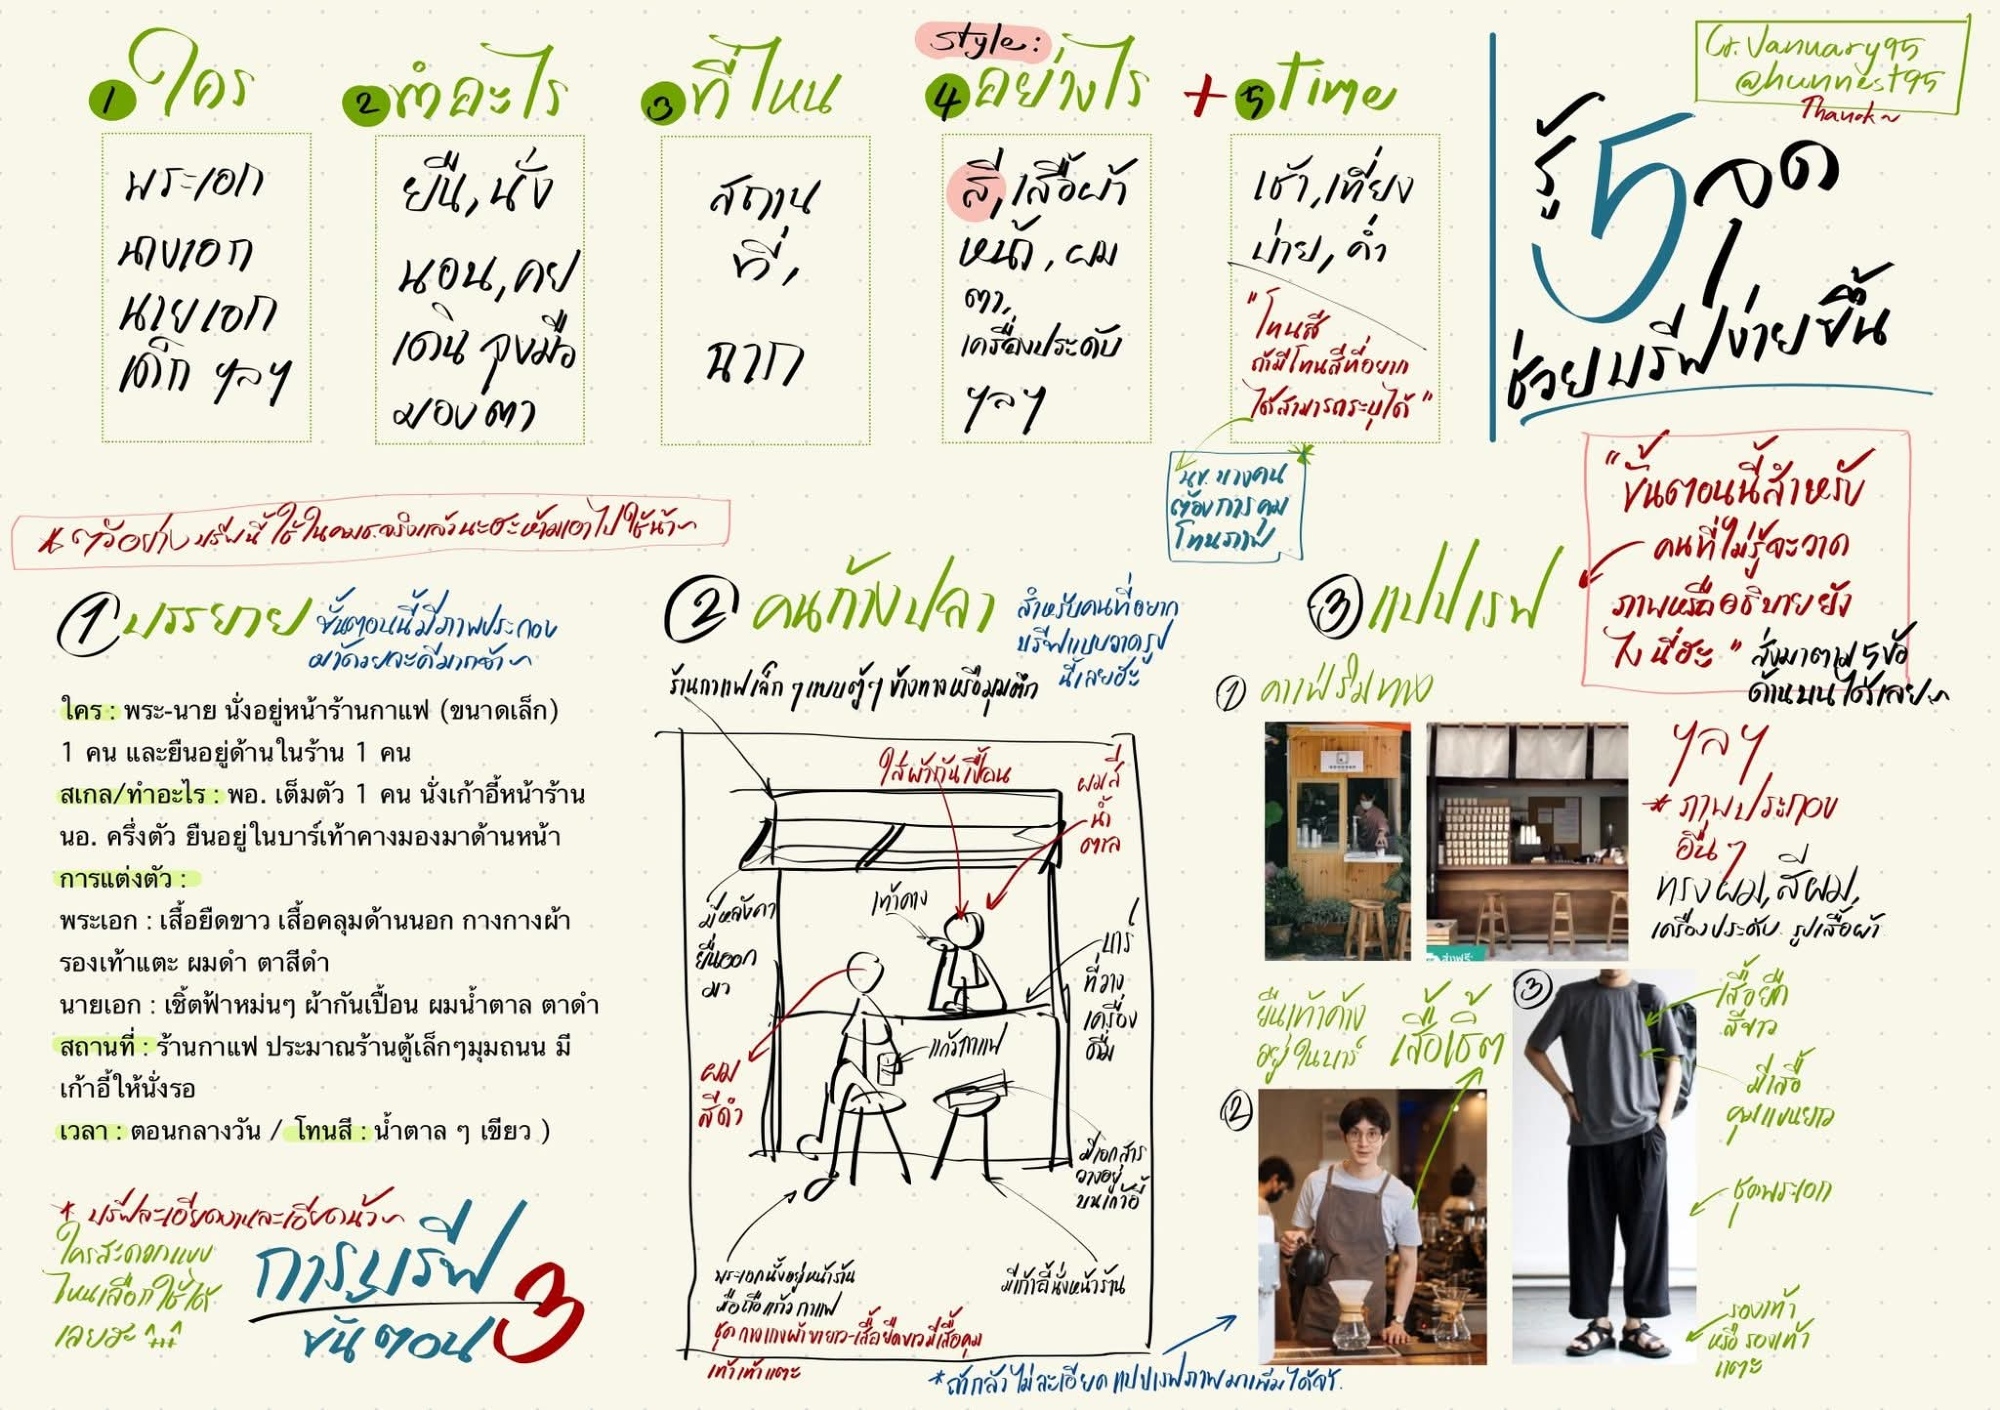 ① ใคร
พระเอก
นางเอก
นายเอก
เด็ก ฯลฯ
② ทำอะไร
ยืน, นั่ง
นอน, คุย
เดิน จูงมือ
มองตา
③ ที่ไหน
สถาน
ที่,
ฉาก
style:
④ อย่างไร
สี, เสื้อผ้า
หน้า, ผม
ตา,
เครื่องประดับ
ฯลฯ
+ ⑤ Time
เช้า, เที่ยง
บ่าย, ค่ำ
"โทนสี
ถ้ามีโทนสีที่อยาก
ได้สามารถระบุได้"
นข. บางคน
ต้องการคุม
โทนภาพ
Cr. January95
@hunnest95
Thank~
รู้ 5 จุด
ช่วยบรีฟง่ายขึ้น
"ขั้นตอนนี้สำหรับ
คนที่ไม่รู้จะวาด
ภาพหรืออธิบายยัง
ไงนี่ฮะ" ส่งมาตาม 5 ข้อ
ด้านบนได้เลย~
* ตัวอย่างบรีฟนี้ใช้ในคมช.จริงแล้วนะฮะห้ามเอาไปใช้น้า~
① บรรยาย
ขั้นตอนนี้มีภาพประกอบ
มาด้วยจะดีมากจ้า~
ใคร : พระ-นาย นั่งอยู่หน้าร้านกาแฟ (ขนาดเล็ก)
1 คน และยืนอยู่ด้านในร้าน 1 คน
สเกล/ทำอะไร : พอ. เต็มตัว 1 คน นั่งเก้าอี้หน้าร้าน
นอ. ครึ่งตัว ยืนอยู่ในบาร์เท้าคางมองมาด้านหน้า
การแต่งตัว :
พระเอก : เสื้อยืดขาว เสื้อคลุมด้านนอก กางกางผ้า
รองเท้าแตะ ผมดำ ตาสีดำ
นายเอก : เชิ้ตฟ้าหม่นๆ ผ้ากันเปื้อน ผมน้ำตาล ตาดำ
สถานที่ : ร้านกาแฟ ประมาณร้านตู้เล็กๆมุมถนน มี
เก้าอี้ให้นั่งรอ
เวลา : ตอนกลางวัน / โทนสี : น้ำตาล ๆ เขียว )
* บรีฟละเอียดงานละเอียดน้า~
ใครสะดวกแบบ
ไหนเลือกใช้ได้
เลยฮะ
การบรีฟ
3
ขั้นตอน
② คนก้างปลา
สำหรับคนที่อยาก
บรีฟแบบวาดรูป
นี้เลยฮะ
ร้านกาแฟเล็ก ๆ แบบตู้ๆ ข้างทางหรือมุมตึก
ใส่ผ้ากันเปื้อน
ผมสี
น้ำ
ตาล
มีหลังคา
ยื่นออก
มา
เท้าคาง
บาร์
ที่วาง
เครื่อง
ดื่ม
แก้วกาแฟ
ผม
สีดำ
มีเอกสาร
วางอยู่
บนเก้าอี้
พระเอกนั่งอยู่หน้าร้าน
มือถือแก้วกาแฟ
ชุด กางเกงผ้าขายาว-เสื้อยืดขาวมีเสื้อคุม
เท้าเท้าแตะ
มีเก้าอี้นั่งหน้าร้าน
*ถ้ากลัวไม่ละเอียดแปปเรฟภาพมาเพิ่มได้จ้า.
③ แปปเรฟ
① คาเฟ่ริมทาง
ส่งฟรี:
ฯลฯ
* ภาพประกอบ
อื่น ๆ
ทรงผม, สีผม,
เครื่องประดับ รูปเสื้อผ้า
ยืนเท้าค้าง
อยู่ในบาร์
เสื้อเชิ้ต
②
③
เสื้อยืด
สีขาว
มีเสื้อ
คุมแขนยาว
ชุดพระเอก
รองเท้า
หรือ รองเท้า
แตะ